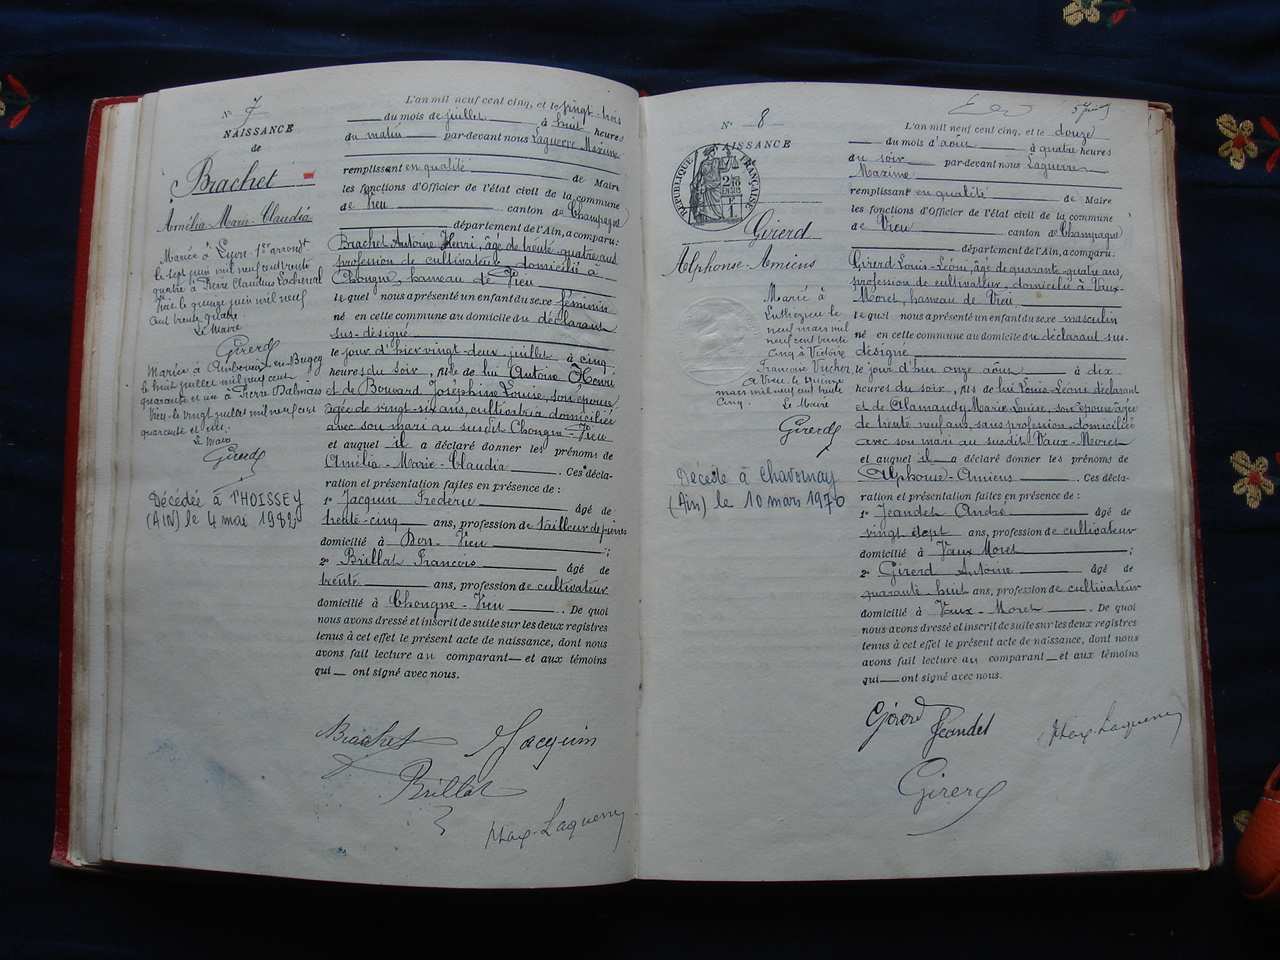 N° 7
NAISSANCE
de
Brachet
Amélia-Marie-Claudia
Mariée à Lyon 1er arrond
le sept juin mil neuf cent trente
quatre à Pierre Claudius
Vieu le quinze juin mil neuf
cent trente quatre.
Le Maire
Girerd
Mariée à Ambérieu-en-Bugey
le huit juillet mil neuf cent
quarante et un à Pierre Dalmais
Vieu le vingt juillet mil neuf cent
quarante et un.
Le Maire
Girerd
Décédée à THOISSEY
(AIN) le 4 mai 1982
L'an mil neuf cent cinq, et le vingt-trois
du mois de juillet à huit heures
du matin par-devant nous Laguerre Maxime
remplissant en qualité de Maire
les fonctions d'Officier de l'état civil de la commune
de Vieu canton de Champagne
département de l'Ain, a comparu:
Brachet Antoine Henri, âgé de trente-quatre ans
profession de cultivateur domicilié à
Chongne, hameau de Vieu
lequel nous a présenté un enfant du sexe féminin
né en cette commune au domicile du déclarant
sus-désigné
le jour d'hier vingt-deux juillet à cinq
heures du soir, fille de lui Antoine Henri
et de Bouvard Joséphine Louise, son épouse
âgée de vingt-six ans, cultivatrice domiciliée
avec son mari au susdit Chongne-Vieu
et auquel il a déclaré donner les prénoms de
Amélia-Marie-Claudia. Ces décla-
ration et présentation faites en présence de :
1° Jacquin Frédéric âgé de
trente-cinq ans, profession de tailleur de pierres
domicilié à Don-Vieu ;
2° Brillat François âgé de
trente ans, profession de cultivateur
domicilié à Chongne-Vieu. De quoi
nous avons dressé et inscrit de suite sur les deux registres
tenus à cet effet le présent acte de naissance, dont nous
avons fait lecture au comparant et aux témoins
qui ont signé avec nous.
Brachet Jacquin
Brillat
Max. Laguerre
N° 8
NAISSANCE
RÉPUBLIQUE FRANÇAISE
Girerd
Alphonse-Amiens
Marié à
Luthézieu le
neuf mars mil
neuf cent trente
cinq à Victoire
Françoise Vucher
à Vieu le quinze
mars mil neuf cent trente
cinq.
Le Maire
Girerd
Décédé à Chavornay
(Ain) le 10 mars 1970
L'an mil neuf cent cinq, et le douze
du mois d'août à quatre heures
du soir par-devant nous Laguerre
Maxime
remplissant en qualité de Maire
les fonctions d'Officier de l'état civil de la commune
de Vieu canton de Champagne
département de l'Ain, a comparu:
Girerd Louis-Léons, âgé de quarante-quatre ans,
profession de cultivateur, domicilié à Vaux-
Moret, hameau de Vieu
lequel nous a présenté un enfant du sexe masculin
né en cette commune au domicile du déclarant sus-
désigné
le jour d'hier onze août à dix
heures du soir, fils de lui Louis-Léons déclarant
et de Alamandy Marie-Louise, son épouse âgée
de trente neuf ans, sans profession domiciliée
avec son mari au susdit Vaux-Moret
et auquel il a déclaré donner les prénoms de
Alphonse-Amiens. Ces décla-
ration et présentation faites en présence de :
1° Jeandet André âgé de
vingt sept ans, profession de cultivateur
domicilié à Vaux Moret ;
2° Girerd Antoine âgé de
quarante huit ans, profession de cultivateur
domicilié à Vaux-Moret. De quoi
nous avons dressé et inscrit de suite sur les deux registres
tenus à cet effet le présent acte de naissance, dont nous
avons fait lecture au comparant et aux témoins
qui ont signé avec nous.
Girerd Jeandet Max. Laguerre
Girerd